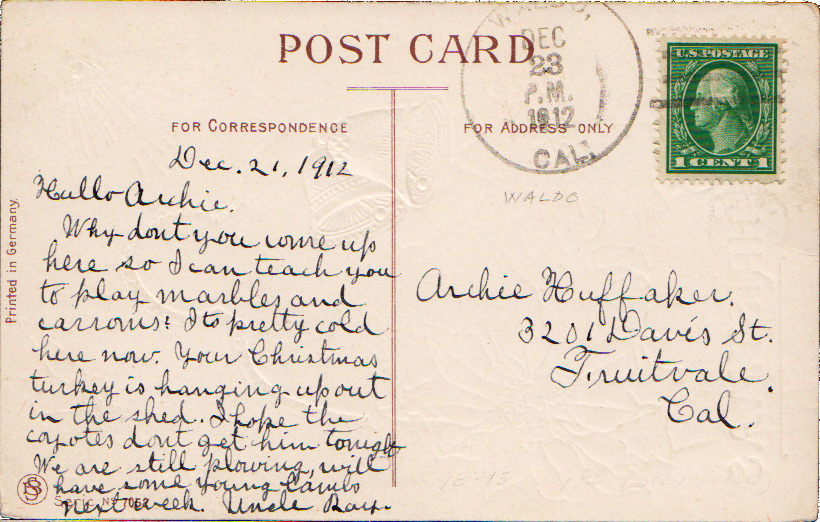 POST CARD
WALDO,
DEC
23
P.M.
1912
CAL.
U.S. POSTAGE
1 CENT 1
FOR CORRESPONDENCE
FOR ADDRESS ONLY
WALDO
Printed in Germany.
Dec. 21, 1912
Hullo Archie.
Why dont you come up
here so I can teach you
to play marbles and
carroms? Its pretty cold
here now. Your Christmas
turkey is hanging up out
in the shed. I hope the
coyotes dont get him tonight
We are still plowing, will
have some young lambs
next week. Uncle Ray.
Serie No 7052
Archie Huffaker.
3201 Davis St.
Fruitvale.
Cal.